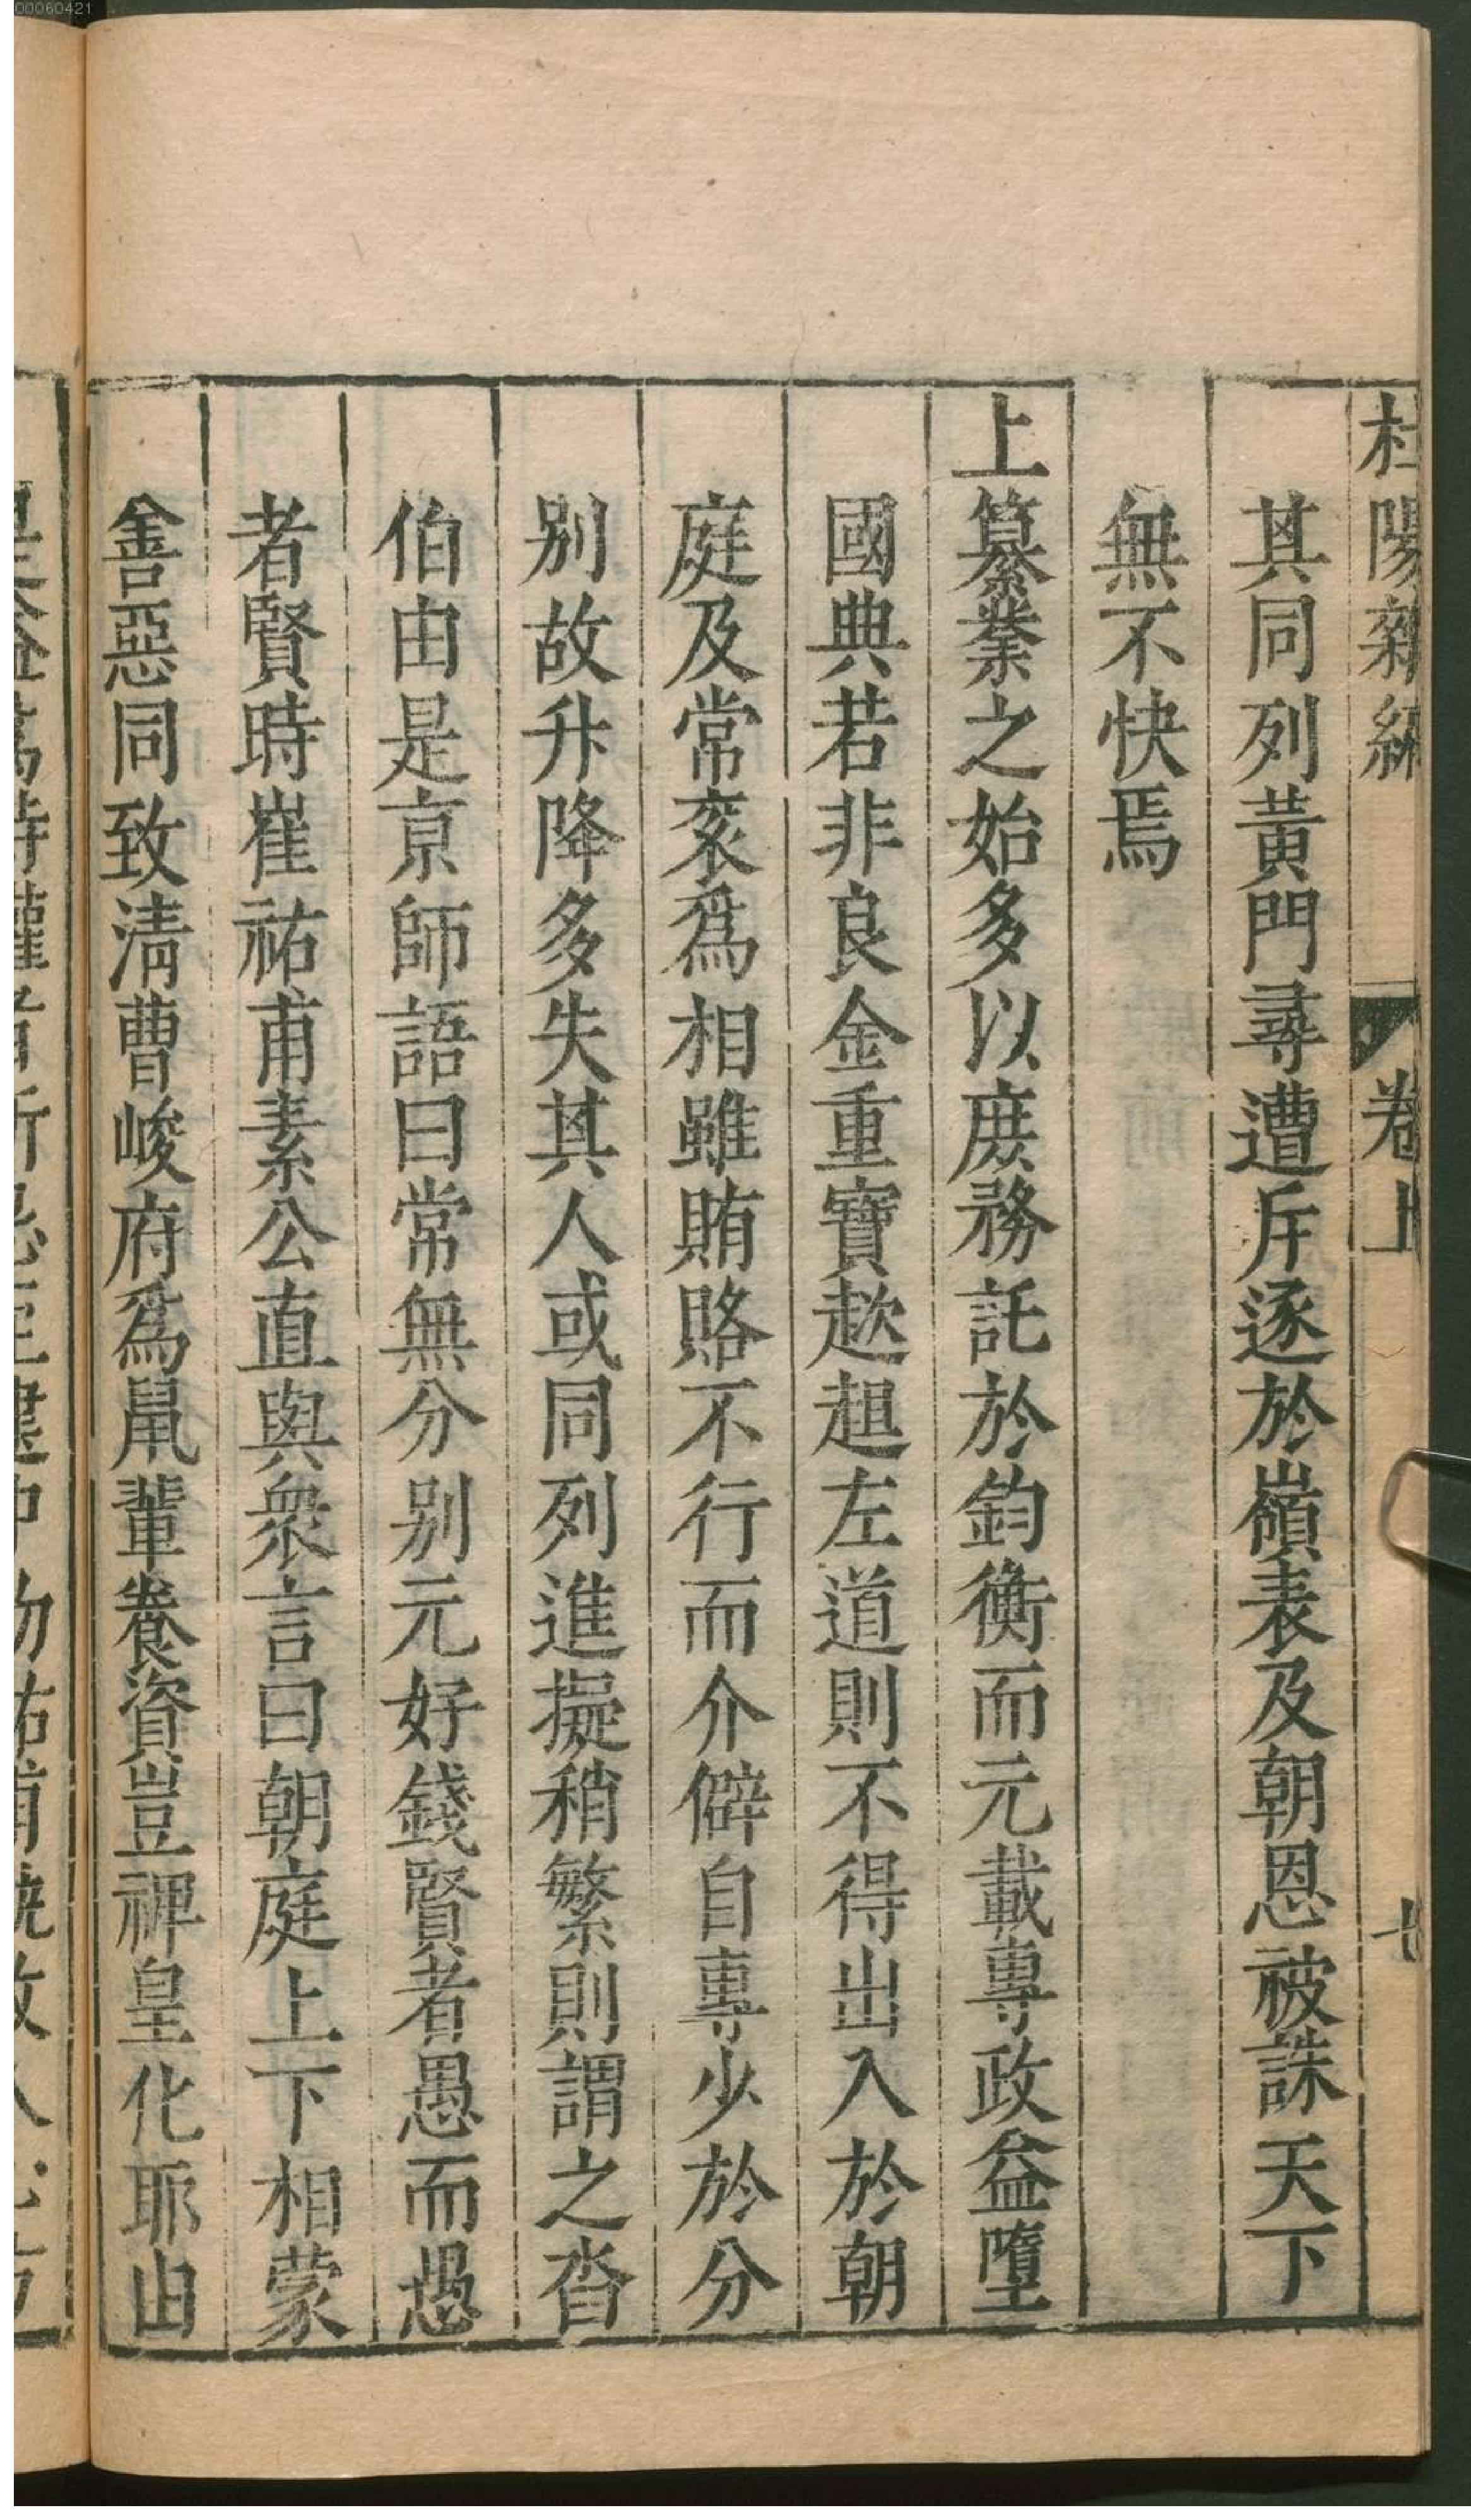 00060421
杜陽雜編 卷上 七
其同列黃門尋遭斥逐於嶺表及朝恩被誅天下
無不快焉
上纂業之始多以庶務託於鈞衡而元載專政益墮
國典若非良金重寶趑趄左道則不得出入於朝
庭及常袞爲相雖賄賂不行而介僻自專少於分
別故升降多失其人或同列進擬稍繁則謂之沓
伯由是亰師語曰常無分別元好錢賢者愚而愚
者賢時崔祐甫素公直與衆言曰朝庭上下相蒙
善惡同致淸曹峻府爲鼠輩養資豈裨皇化耶由